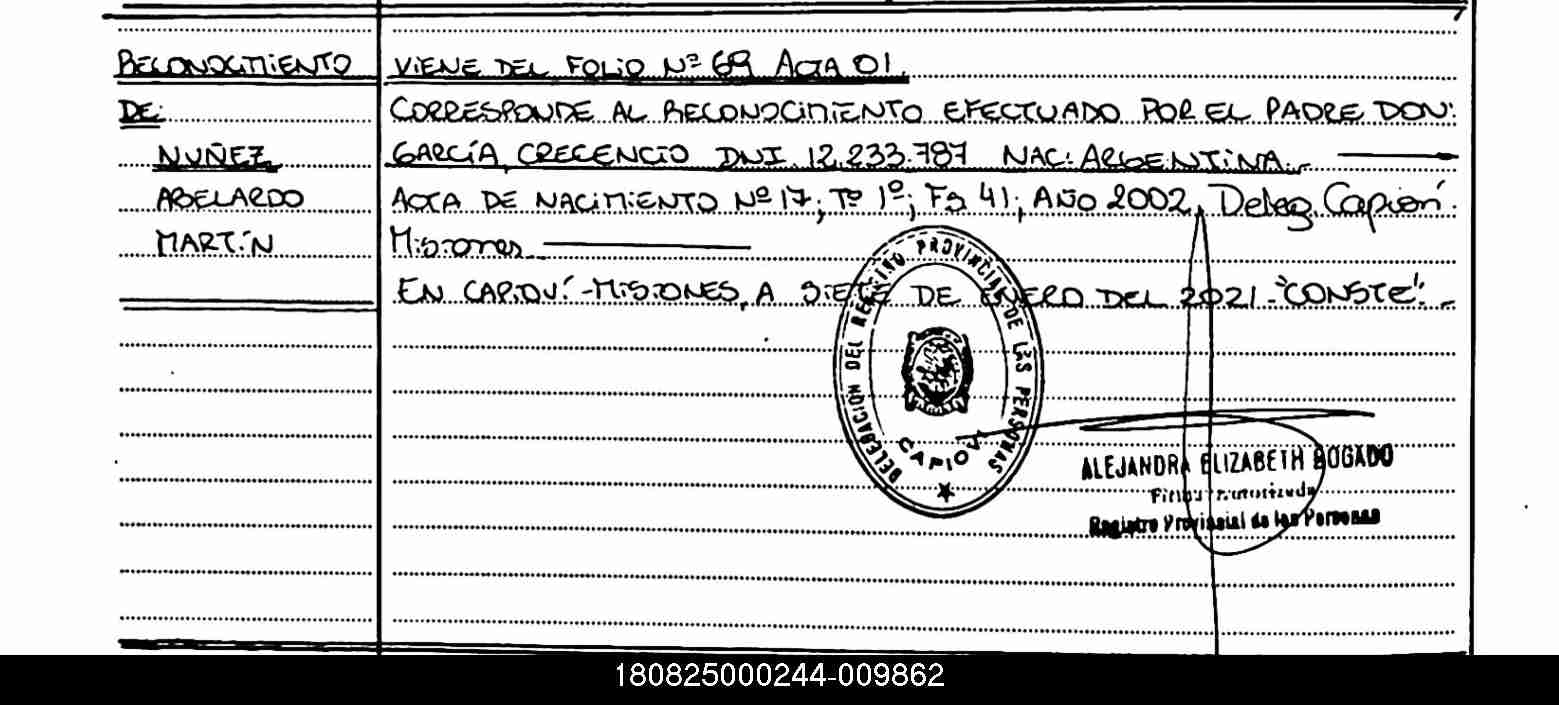 RECONOCIMIENTO
DE:
NUÑEZ
ABELARDO
MARTÍN
VIENE DEL FOLIO Nº 69 ACTA 01.
CORRESPONDE AL RECONOCIMIENTO EFECTUADO POR EL PADRE DON:
GARCÍA, CRECENCIO DNI 12.233.787 NAC: ARGENTINA.-
ACTA DE NACIMIENTO Nº 17; Tº 1º; Fº 41; AÑO 2002, Deleg. Capioví.
Misiones
EN CAPIOVÍ-MISIONES, A SIETE DE ENERO DEL 2021-"CONSTE".-
DELEGACION DEL REGISTRO PROVINCIAL DE LAS PERSONAS
CAPIOVI
ALEJANDRA ELIZABETH BOGADO
Firma Autorizada
Registro Provincial de las Personas
180825000244-009862